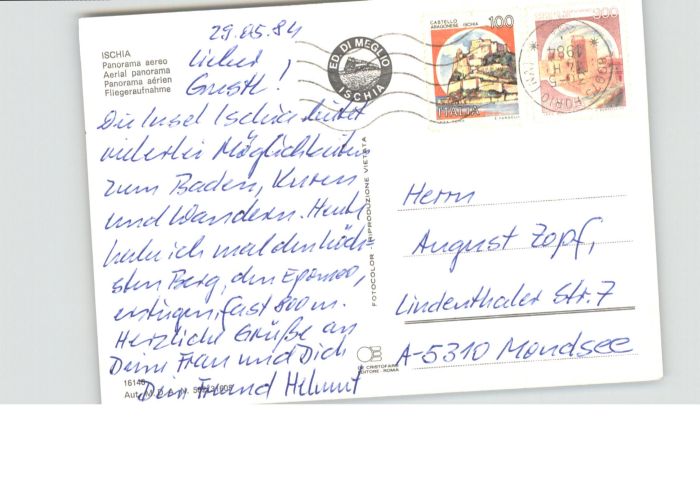 29.05.84
ISCHIA
Panorama aereo
Aerial panorama
Panorama aérien
Fliegeraufnahme
Lieber
Gustl!
Die Insel Ischia bietet
vielerlei Möglichkeiten
zum Baden, Kuren
und Wandern. Heute
habe ich mal den höch-
sten Berg, den Epomeo,
erstiegen, fast 800 m.
Herzliche Grüße an
Deine Frau und Dich
Dein Freund Helmut
16148
Aut. M.
ED. DI MEGLIO
ISCHIA
FOTOCOLOR RIPRODUZIONE VIETATA
DE CRISTOFARO
EDITORE - ROMA
CASTELLO
ARAGONESE ISCHIA
100
ITALIA
300
1984
FORIO
Herrn
August Zopf,
Lindenthaler Str. 7
A-5310 Mondsee